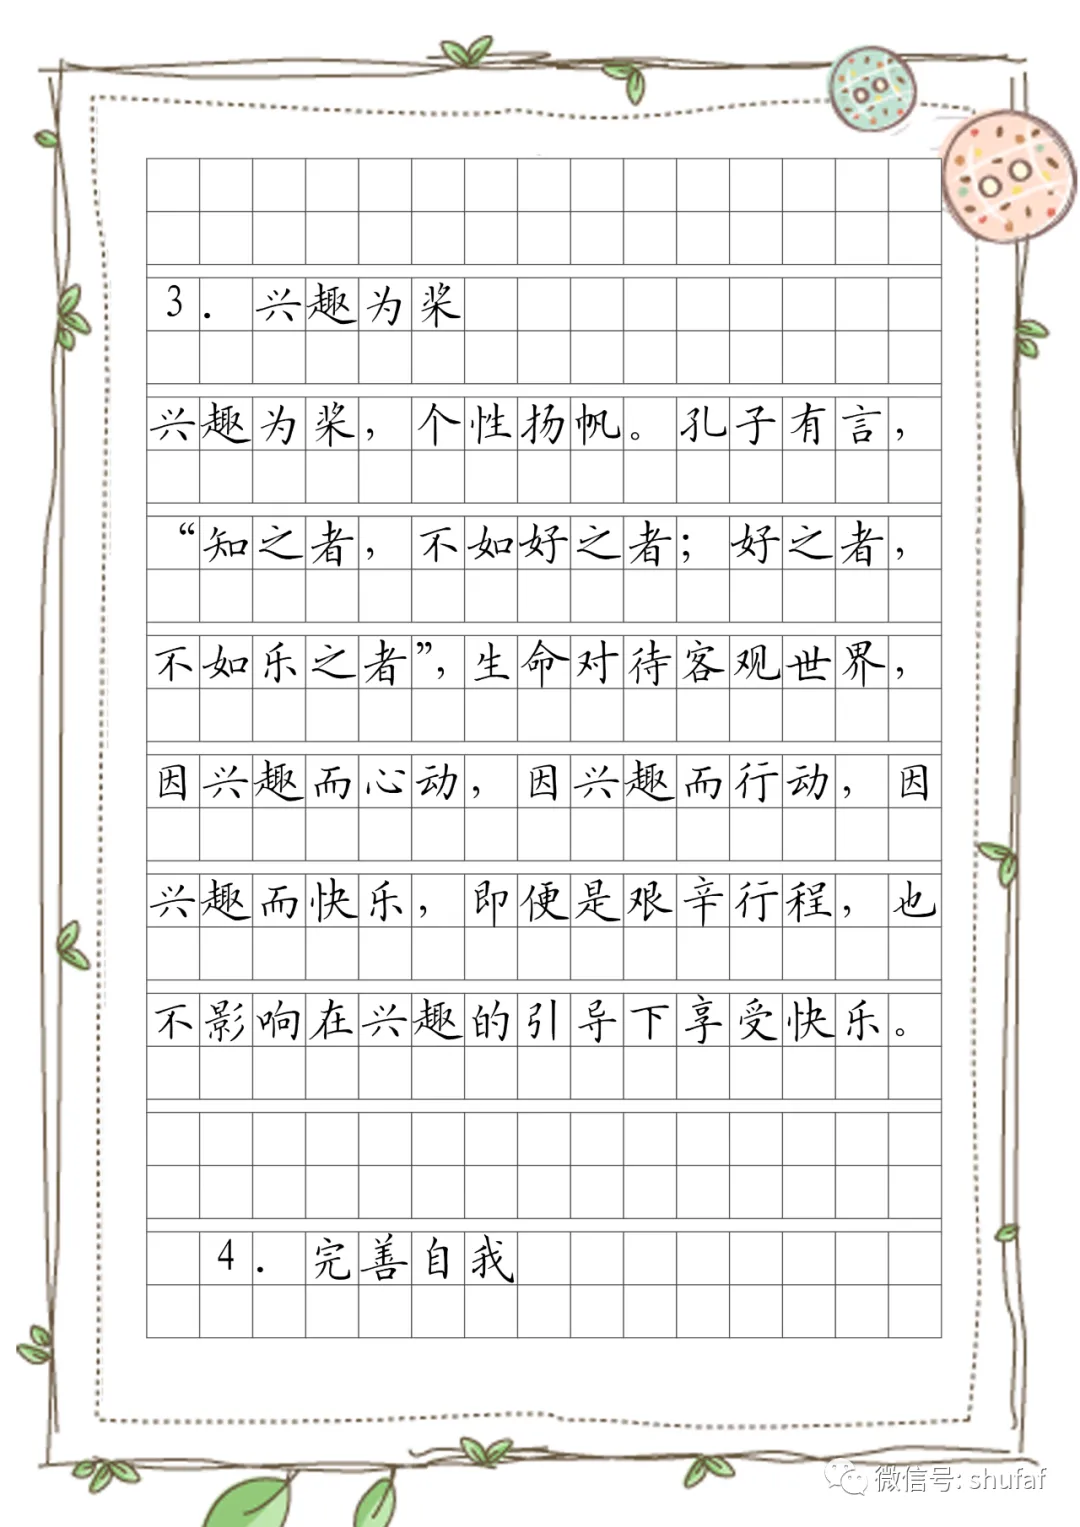 3．兴趣为桨
兴趣为桨，个性扬帆。孔子有言，
“知之者，不如好之者；好之者，
不如乐之者”，生命对待客观世界，
因兴趣而心动，因兴趣而行动，因
兴趣而快乐，即便是艰辛行程，也
不影响在兴趣的引导下享受快乐。
4．完善自我
微信号: shufaf